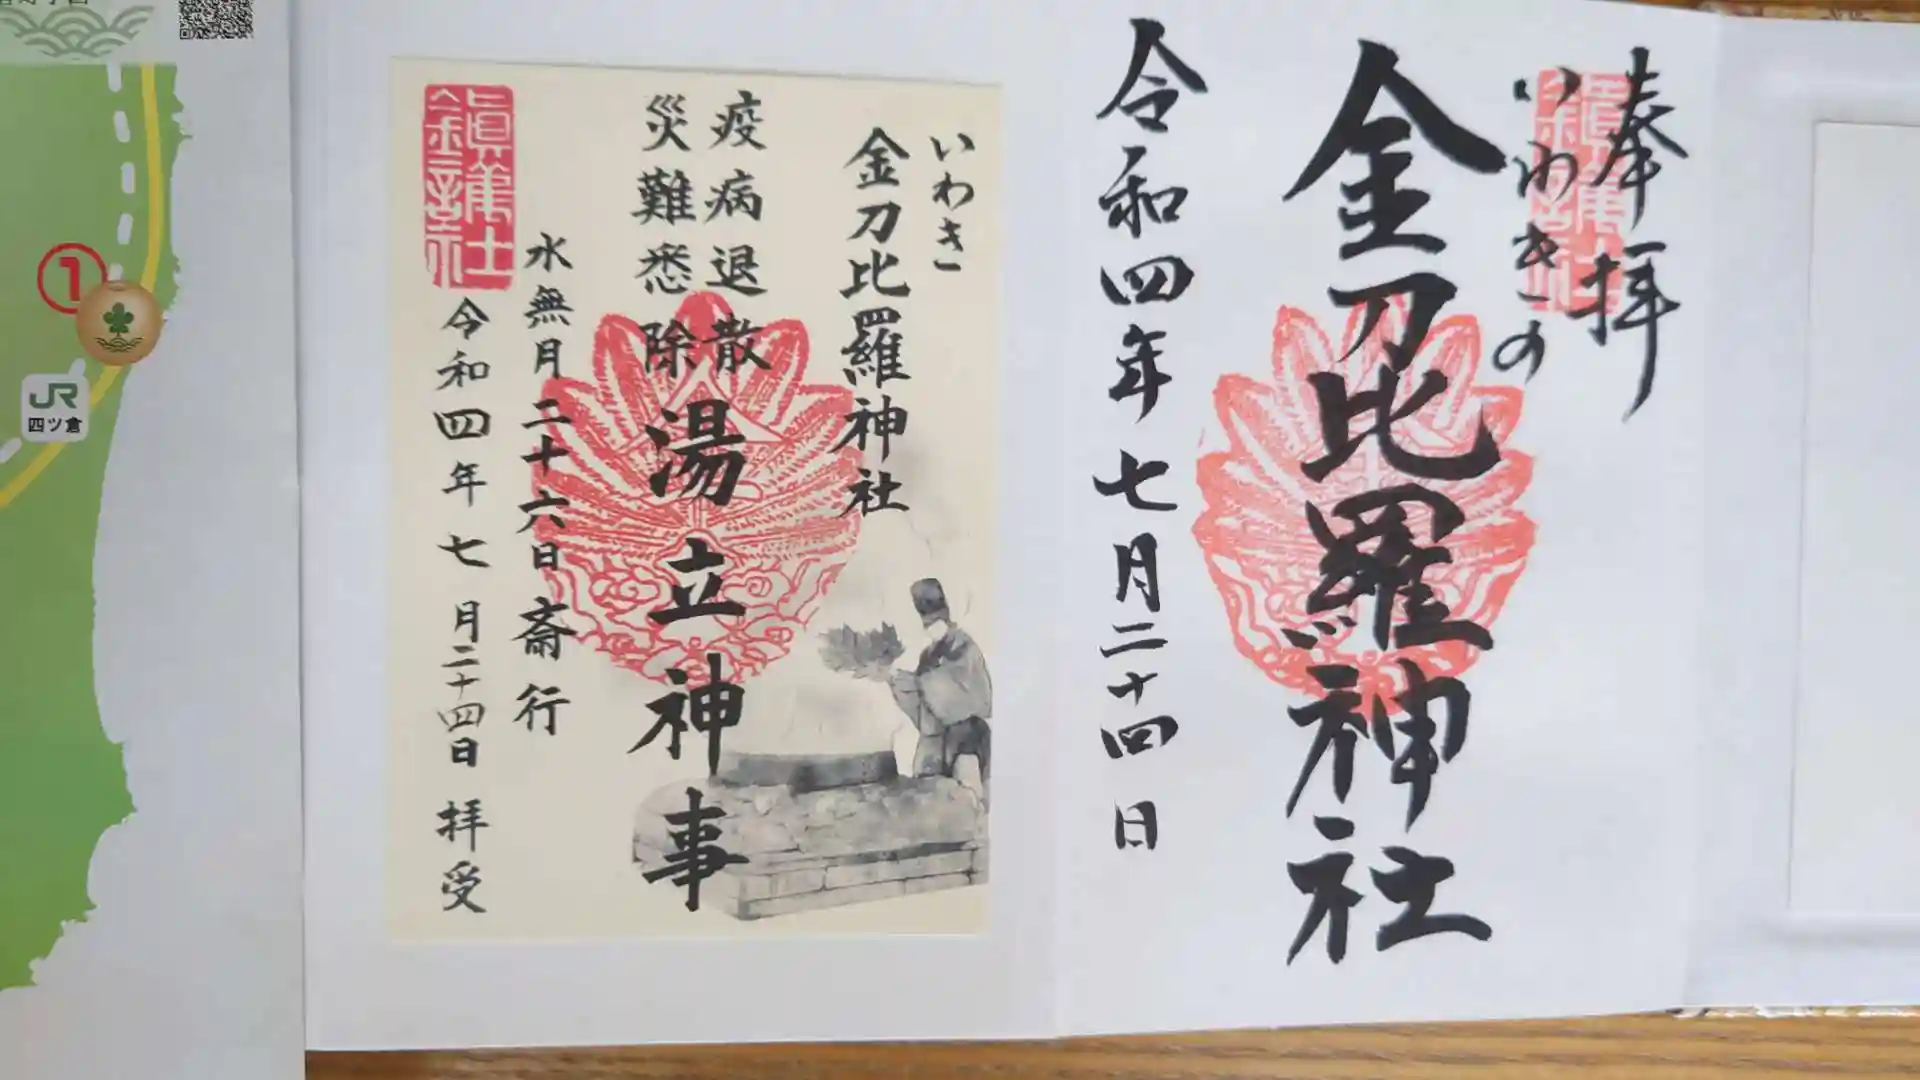 奉拝
いわきの
金刀比羅神社
令和四年七月二十四日
いわき
金刀比羅神社
疫病退散
災難悉除
湯立神事
水無月二十六日斎行
令和四年七月二十四日拝受
1
JR
四ツ倉